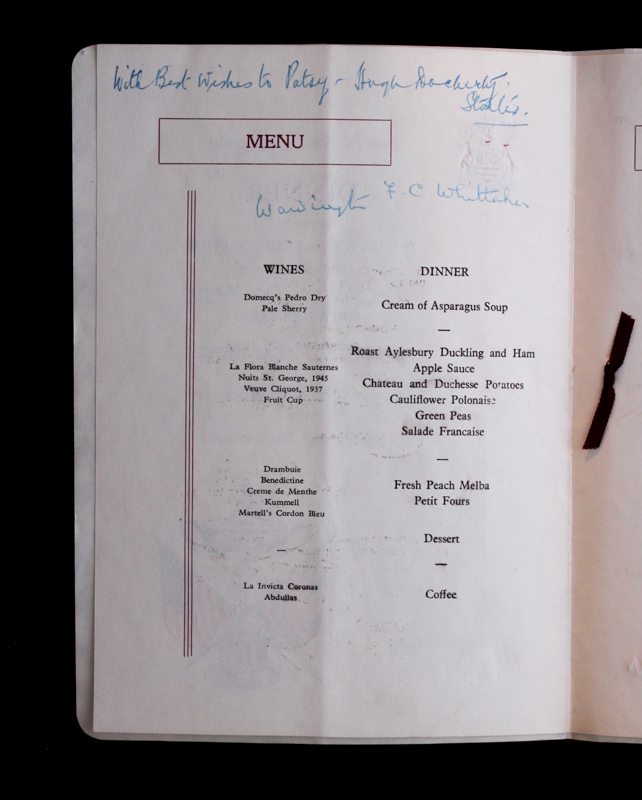 With Best Wishes to Patsy - Hugh Docherty.
MENU
F. C. Whittaker
WINES
Domecq's Pedro Dry
Pale Sherry
La Flora Blanche Sauternes
Nuits St. George, 1945
Veuve Cliquot, 1937
Fruit Cup
Drambuie
Benedictine
Creme de Menthe
Kummell
Martell's Cordon Bleu
—
La Invicta Coronas
Abdullas
DINNER
Cream of Asparagus Soup
—
Roast Aylesbury Duckling and Ham
Apple Sauce
Chateau and Duchesse Potatoes
Cauliflower Polonaise
Green Peas
Salade Francaise
—
Fresh Peach Melba
Petit Fours
Dessert
—
Coffee